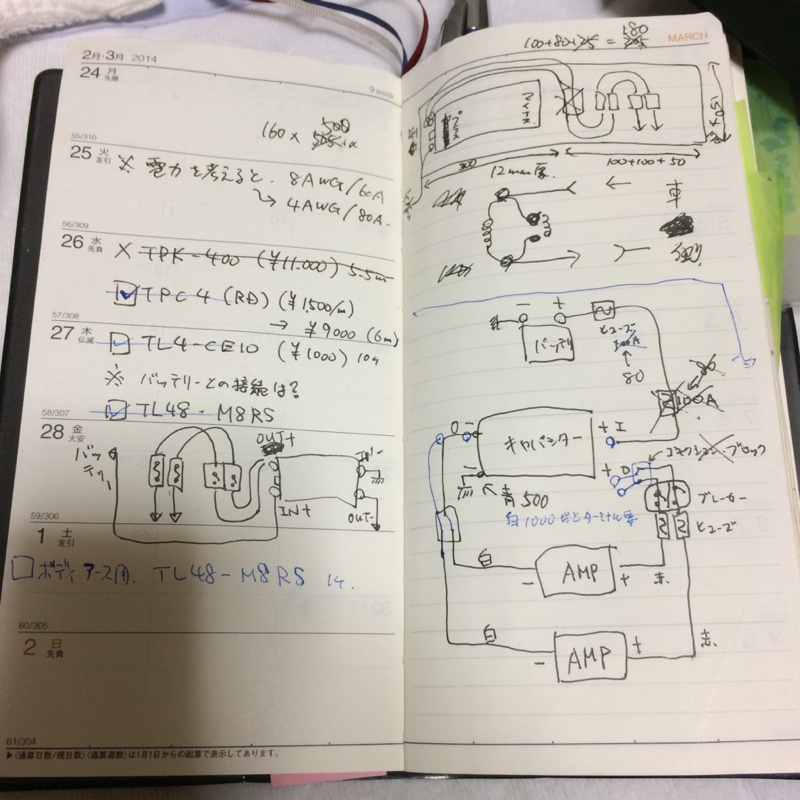 2月-3月 2014
9 week
24 月
先勝
160 × 500
55/310
25 火
友引
※ 電力を考えると. 8AWG/60A
↳ 4AWG/80A.
56/309
26 水
先負
× TPK-400 (¥11.000) 5.5m
☑ TPC4 (RD) (¥1,500/m)
→ ¥9000 (6m)
57/308
27 木
仏滅
☑ TL4-CE10 (¥1000) 10ヶ
※ バッテリーとの接続は?
☑ TL48-M8RS
58/307
28 金
大安
バッテリー
OUT+
IN+
OUT-
59/306
1 土
友引
□ ボディアース用. TL48-M8RS 1ヶ.
60/305
2 日
先負
61/304
▶〈通算日数/残日数〉〈通算週数〉は1月1日からの起算で表示してあります。
MARCH
580
100+80×25 =
プラス
マイナス
100+100+50
12mm厚.
← 車
− +
バッテリ
ヒューズ
100A
↑
80
80
100A
− キャパシター + I
+ O
コネクション・ブロック
青500
白1000だとターミナル要
ブレーカー
ヒューズ
白 − AMP + 赤.
白 − AMP + 赤.